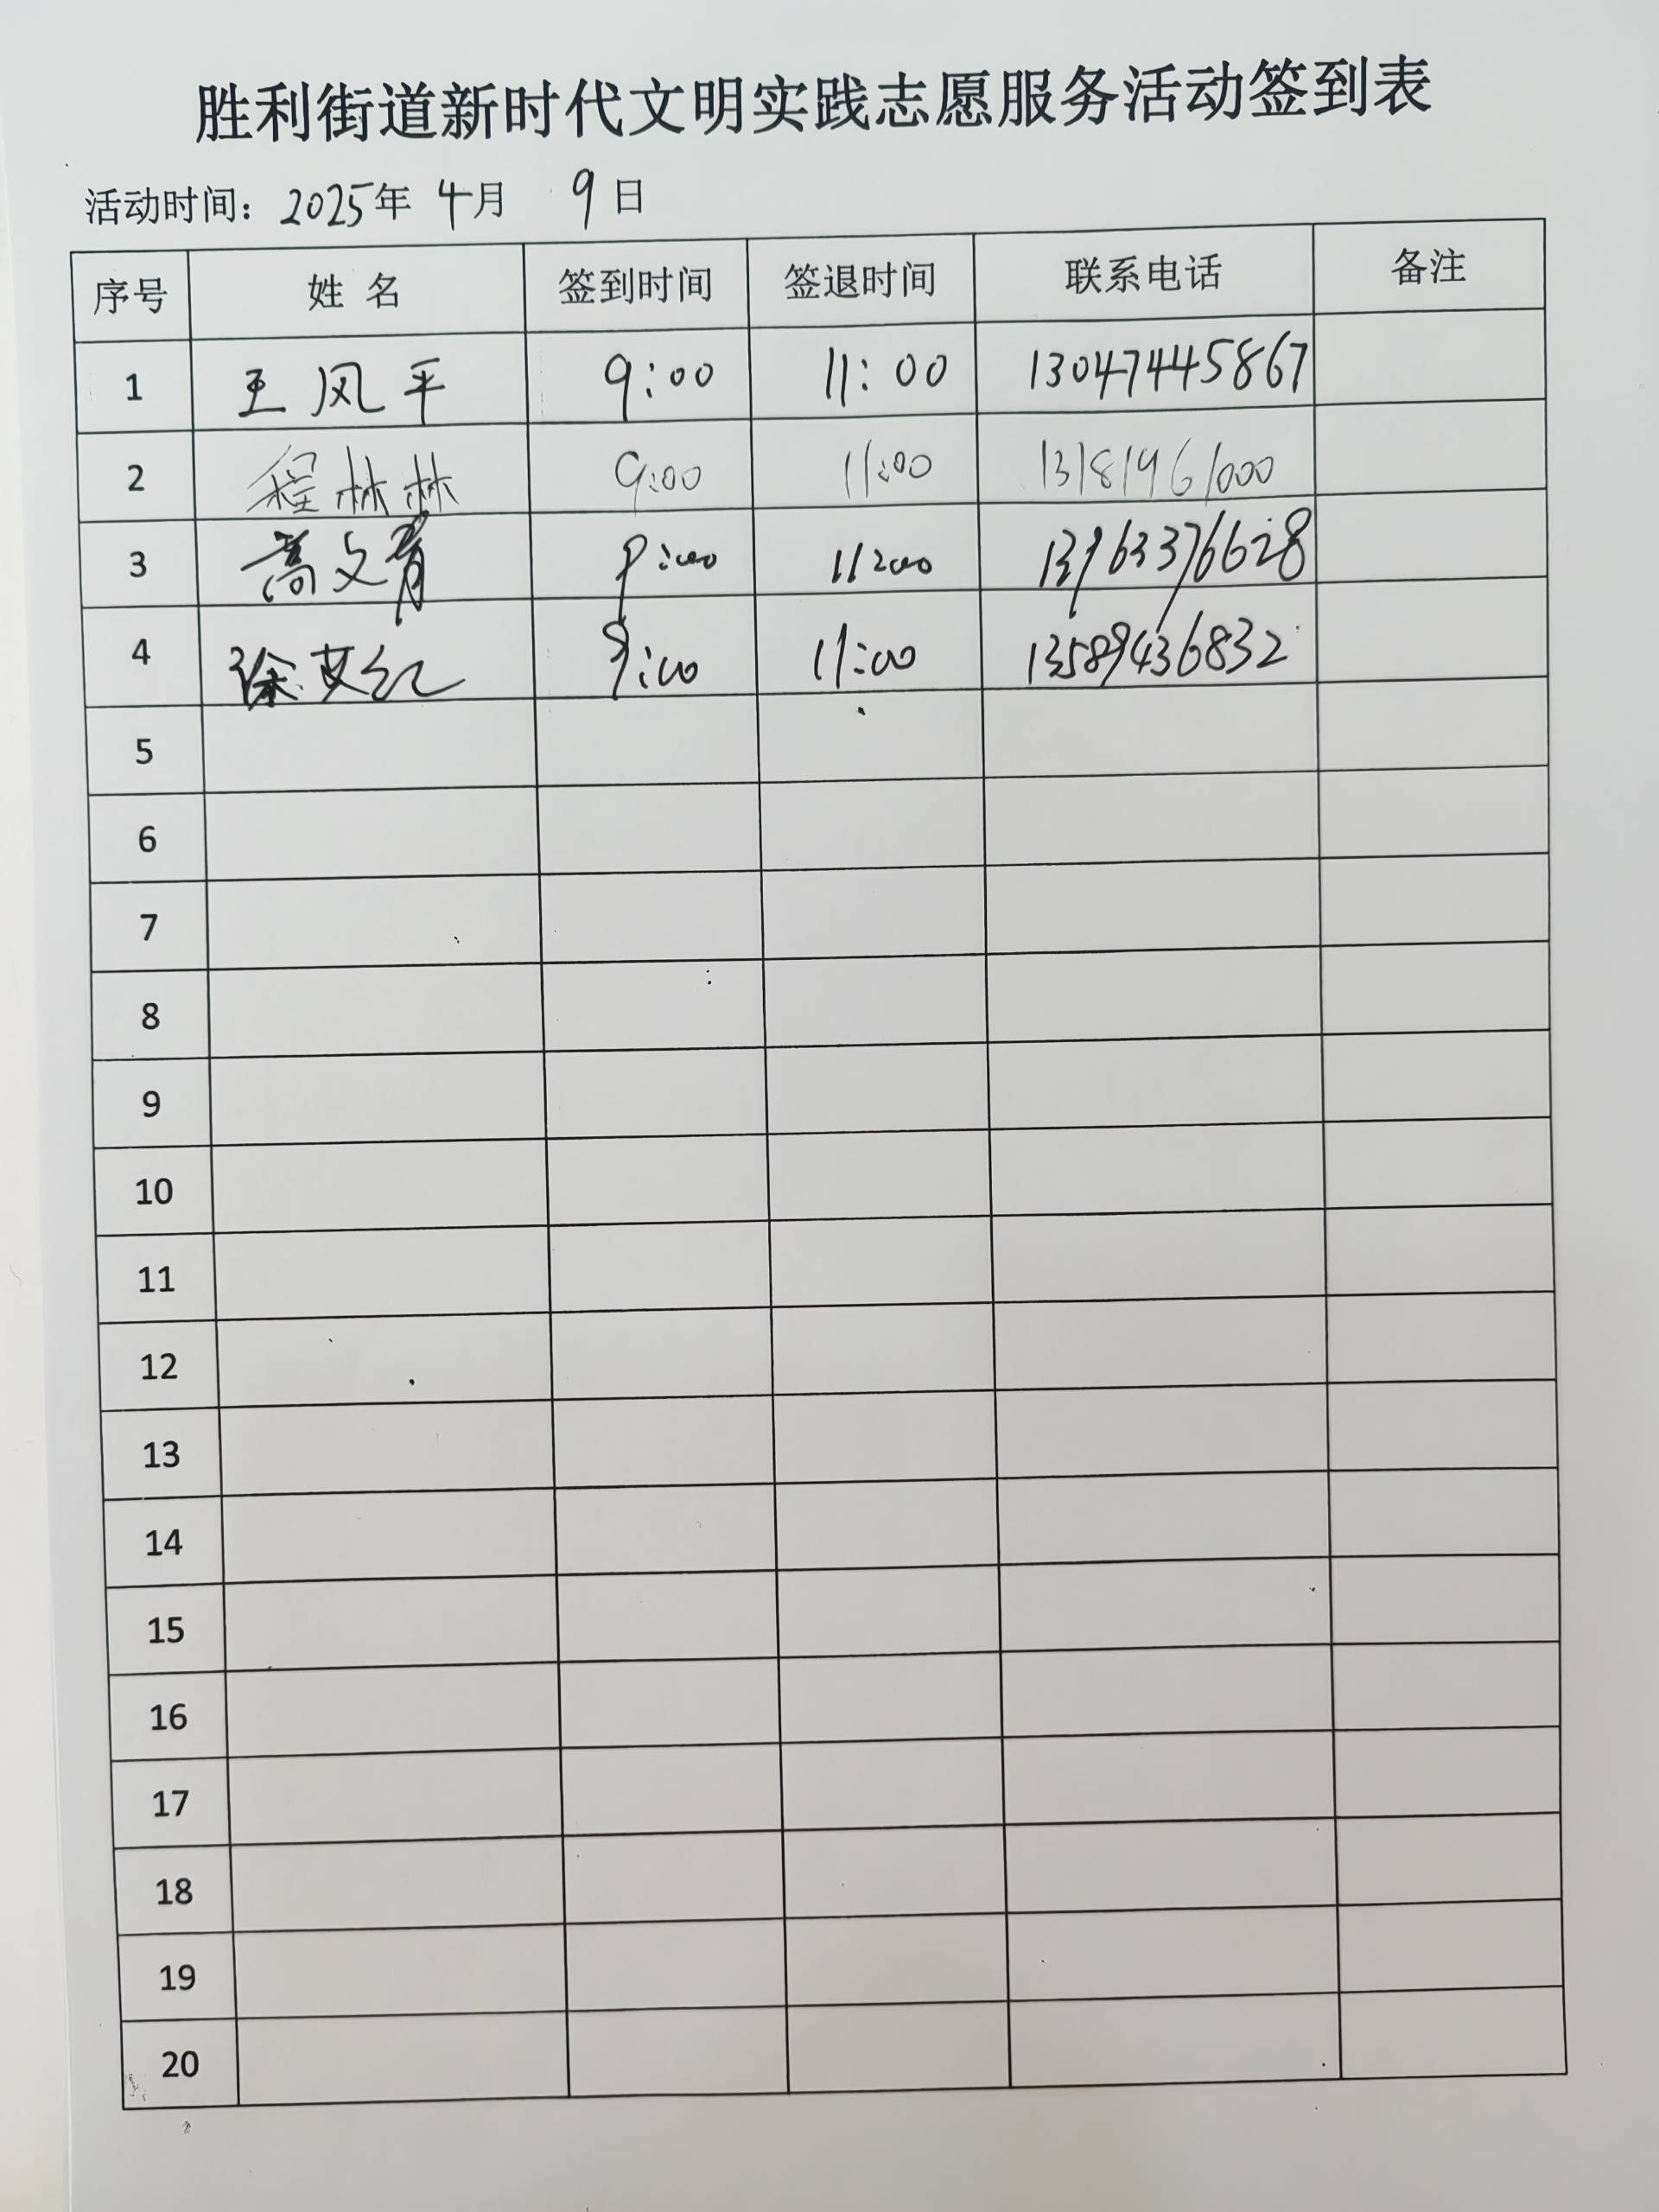 胜利街道新时代文明实践志愿服务活动签到表
活动时间：2025年 4月 9日
序号 姓 名 签到时间 签退时间 联系电话 备注
1 王风平 9:00 11:00 13047445867
2 程林林 9:00 11:00 13181961000
3 高文青 9:00 11:00 13963376628
4 徐艾红 9:00 11:00 13589436832
5
6
7
8
9
10
11
12
13
14
15
16
17
18
19
20